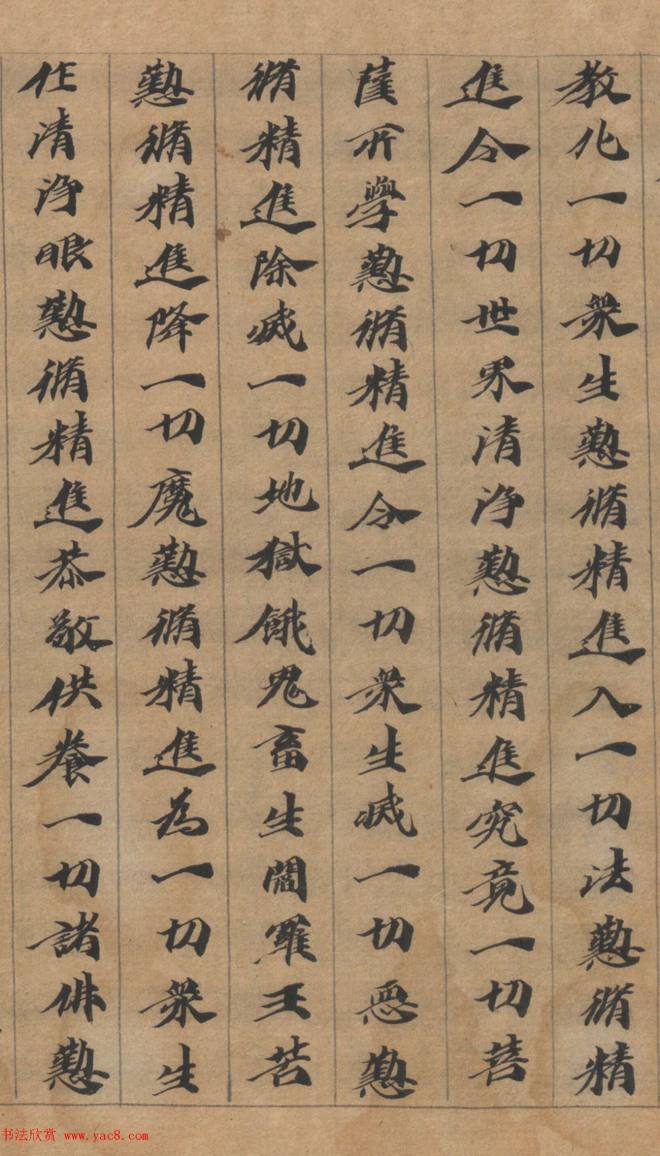 教化一切眾生懃脩精進入一切法懃脩精
進令一切世界清淨懃脩精進究竟一切菩
薩所學懃脩精進令一切眾生滅一切惡懃
脩精進除滅一切地獄餓鬼畜生閻羅王苦
懃脩精進降一切魔懃脩精進為一切眾生
作清淨眼懃脩精進恭敬供養一切諸佛懃
书法欣赏 www.yac8.com